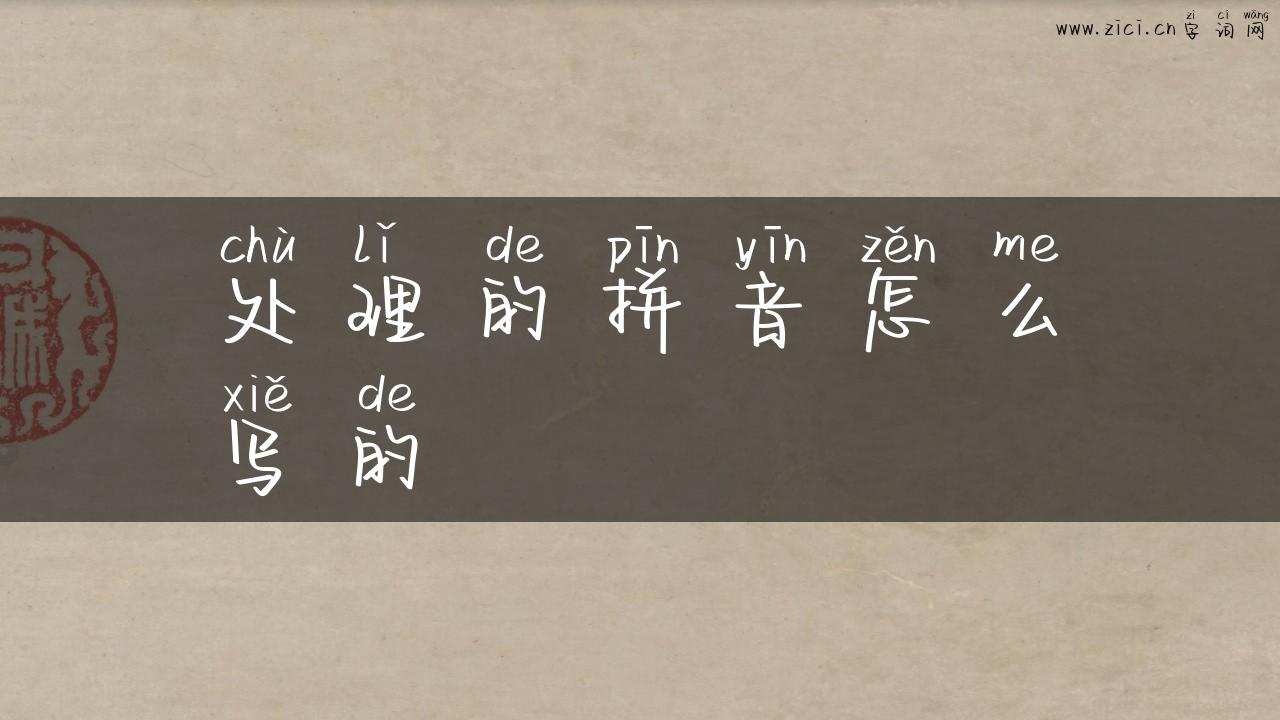 zì cí wǎng
www.zici.cn 字词网
chù lǐ de pīn yīn zěn me
处理的拼音怎么
xiě de
写的